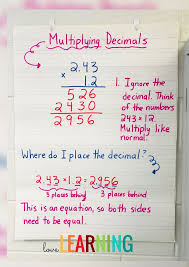 Multiplying Decimals
2.43
x 12
526
2430
2956
1. Ignore the
decimal. Think
of the numbers
243 x 12.
Multiply like
normal.
Where do I place the decimal?
2.43 x 12 = 2956
3 places behind 3 places behind
This is an equation, so both sides
need to be equal.
LEARNING